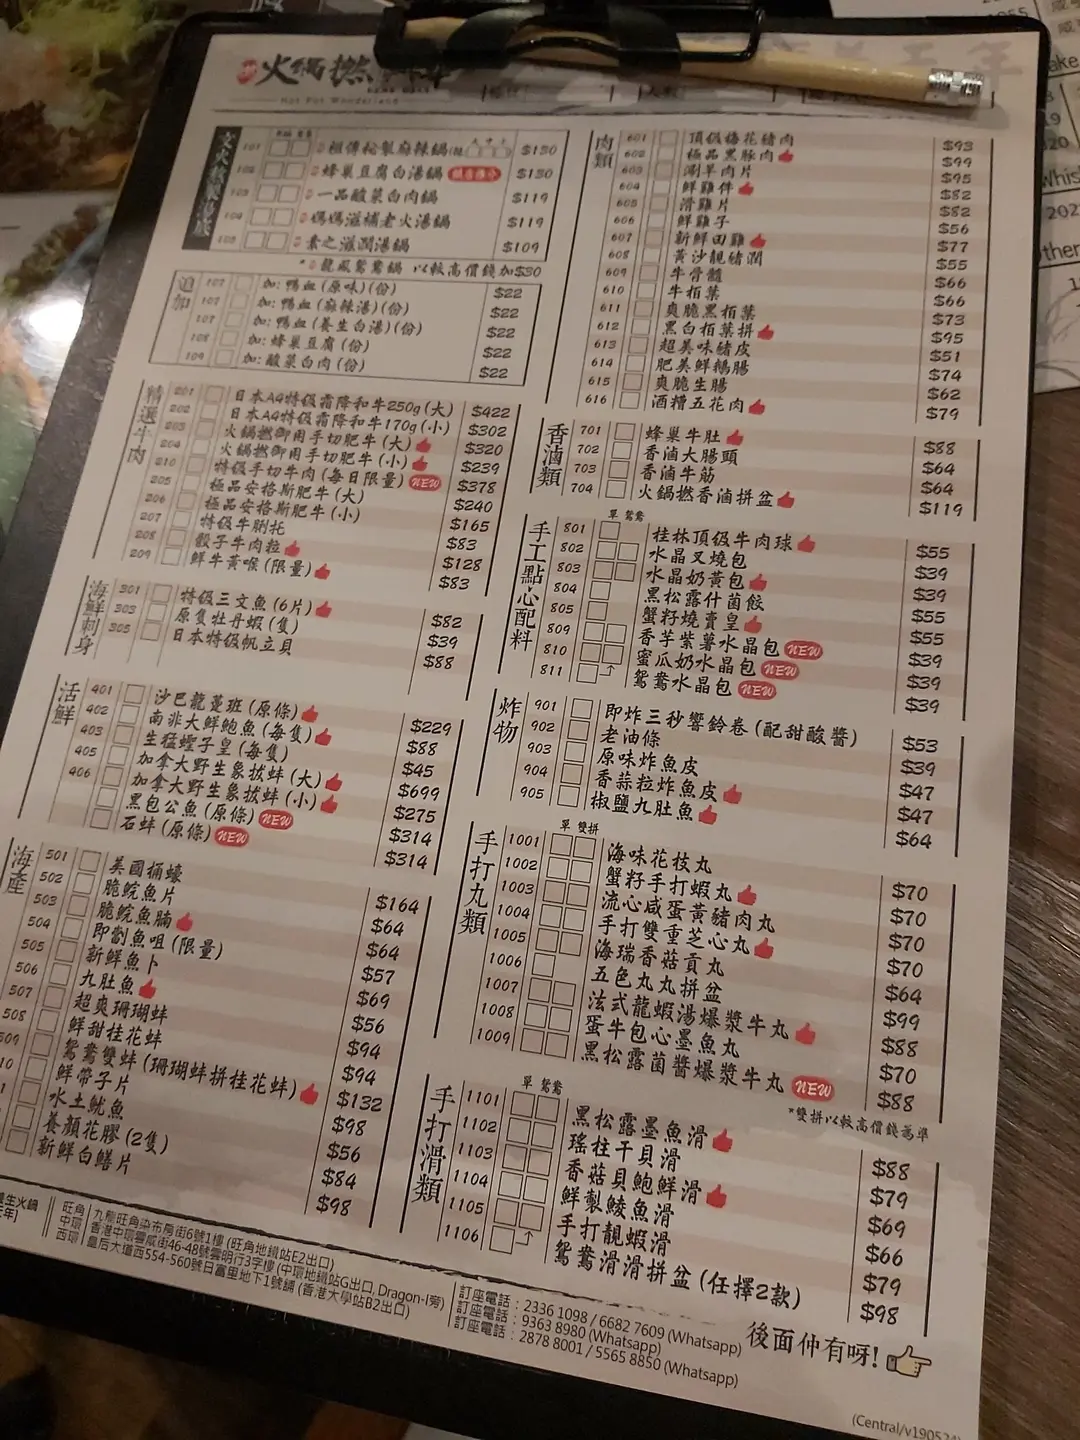 火鍋撚
Hot Pot Wonderland
文火
101 祖傳秘製麻辣鍋 $130
102 蜂巢豆腐白湯鍋 $130
103 一品酸菜白肉鍋 $119
104 媽媽滋補老火湯鍋 $119
105 素之滋潤湯鍋 $109
*龍鳳鴛鴦鍋 以較高價錢加$30
追加
加: 鴨血(原味)(份) $22
107 加: 鴨血(麻辣湯)(份) $22
107 加: 鴨血(養生白湯)(份) $22
108 加: 蜂巢豆腐(份) $22
109 加: 酸菜白肉(份) $22
精選牛肉
201 日本A4特級霜降和牛250g(大) $422
202 日本A4特級霜降和牛170g(小) $302
203 火鍋撚御用手切肥牛(大) $320
204 火鍋撚御用手切肥牛(小) $239
210 特級手切牛肉(每日限量) NEW $378
205 極品安格斯肥牛(大) $240
206 極品安格斯肥牛(小) $165
207 特級牛脷托 $83
208 骰子牛肉粒 $128
209 鮮牛黃喉(限量) $83
海鮮刺身
301 特級三文魚(6片) $82
303 原隻牡丹蝦(隻) $39
305 日本特級帆立貝 $88
活鮮
401 沙巴龍躉班(原條) $229
402 南非大鮮鮑魚(每隻) $88
403 生猛蟶子皇(每隻) $45
405 加拿大野生象拔蚌(大) $699
406 加拿大野生象拔蚌(小) $275
黑包公魚(原條) NEW $314
石蚌(原條) NEW $314
海產
501 美國桶蠔 $164
502 脆鯇魚片 $64
503 脆鯇魚腩 $64
504 即劏魚咀(限量) $57
505 新鮮魚卜 $69
506 九肚魚 $56
507 超爽珊瑚蚌 $94
508 鮮甜桂花蚌 $94
509 鴛鴦雙蚌(珊瑚蚌拼桂花蚌) $132
10 鮮帶子片 $98
水土魷魚 $56
養顏花膠(2隻) $84
新鮮白鱔片 $98
肉類
601 頂級梅花豬肉 $93
602 極品黑豚肉 $99
603 涮羊肉片 $95
604 鮮雞件 $82
605 滑雞片 $82
606 鮮雞子 $56
607 新鮮田雞 $77
608 黃沙靚豬潤 $55
609 牛骨髓 $66
610 牛栢葉 $66
611 爽脆黑栢葉 $73
612 黑白栢葉拼 $95
613 超美味豬皮 $51
614 肥美鮮鵝腸 $74
615 爽脆生腸 $62
616 酒糟五花肉 $79
香滷類
701 蜂巢牛肚 $88
702 香滷大腸頭 $64
703 香滷牛筋 $64
704 火鍋撚香滷拼盆 $119
手工點心配料
單 鴛鴦
801 桂林頂級牛肉球 $55
802 水晶叉燒包 $39
803 水晶奶黃包 $39
804 黑松露什菌餃 $55
805 蟹籽燒賣皇 $55
809 香芋紫薯水晶包 NEW $39
810 蜜瓜奶水晶包 NEW $39
811 鴛鴦水晶包 NEW $39
炸物
901 即炸三秒響鈴卷(配甜酸醬) $53
902 老油條 $39
903 原味炸魚皮 $47
904 香蒜粒炸魚皮 $47
905 椒鹽九肚魚 $64
手打丸類
單 雙拼
1001 海味花枝丸 $70
1002 蟹籽手打蝦丸 $70
1003 流心咸蛋黃豬肉丸 $70
1004 手打雙重芝心丸 $70
1005 海瑞香菇貢丸 $64
1006 五色丸丸拼盆 $99
1007 法式龍蝦湯爆漿牛丸 $88
1008 蛋牛包心墨魚丸 $70
1009 黑松露菌醬爆漿牛丸 NEW $88
*雙拼以較高價錢為準
手打滑類
單 鴛鴦
1101 黑松露墨魚滑 $88
1102 瑤柱干貝滑 $79
1103 香菇貝鮑鮮滑 $69
1104 鮮製鯪魚滑 $66
1105 手打靚蝦滑 $79
1106 鴛鴦滑滑拼盆(任擇2款) $98
生火鍋
旺角 九龍旺角染布房街6號1樓 (旺角地鐵站E2出口)
中環 香港中環雲咸街46-48號雲明行3字樓 (中環地鐵站G出口, Dragon-I旁)
西環 皇后大道西554-560號日富里地下1號舖 (香港大學站B2出口)
訂座電話 : 2336 1098 / 6682 7609 (Whatsapp)
訂座電話 : 9363 8980 (Whatsapp)
訂座電話 : 2878 8001 / 5565 8850 (Whatsapp)
後面仲有呀!